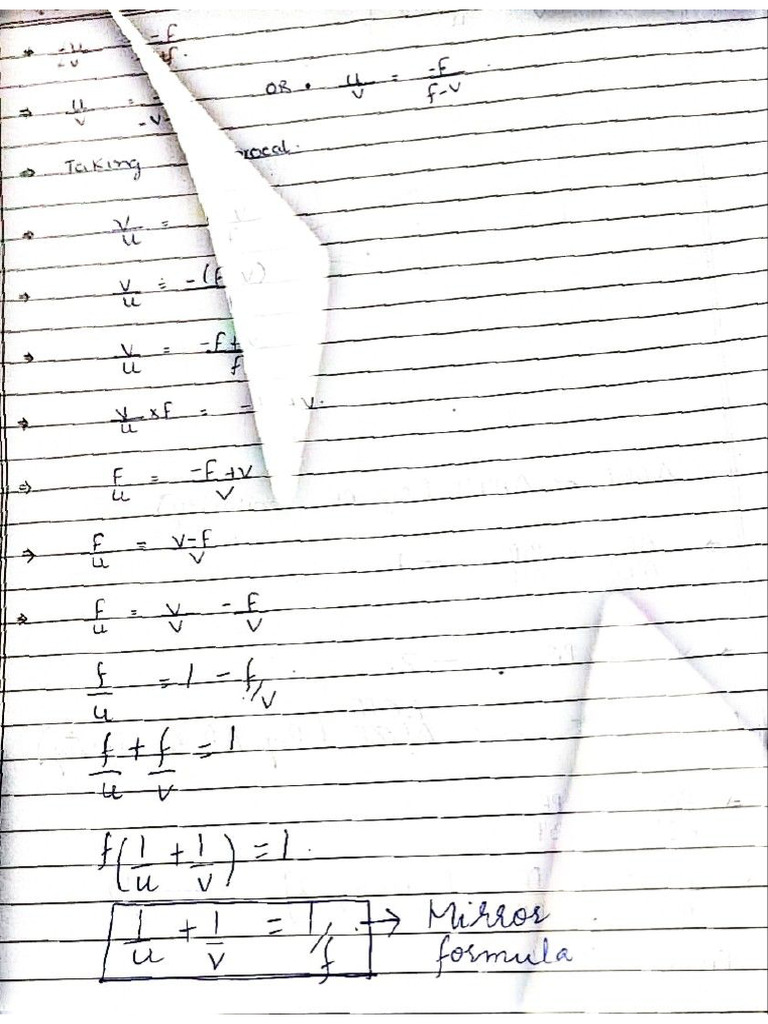 ⇒ -u/-v = -f
⇒ u/v = -v OR • u/v = -f/f-v
⇒ Taking
⇒ v/u =
⇒ v/u = -(f v)
⇒ v/u = -f+/f
⇒ v/u ×f = - v.
⇒ f/u = -f+v/v
⇒ f/u = v-f/v
⇒ f/u = v/v - f/v
f/u = 1 - f/v
f/u + f/v = 1
f(1/u + 1/v) = 1.
1/u + 1/v = 1/f → Mirror
formula